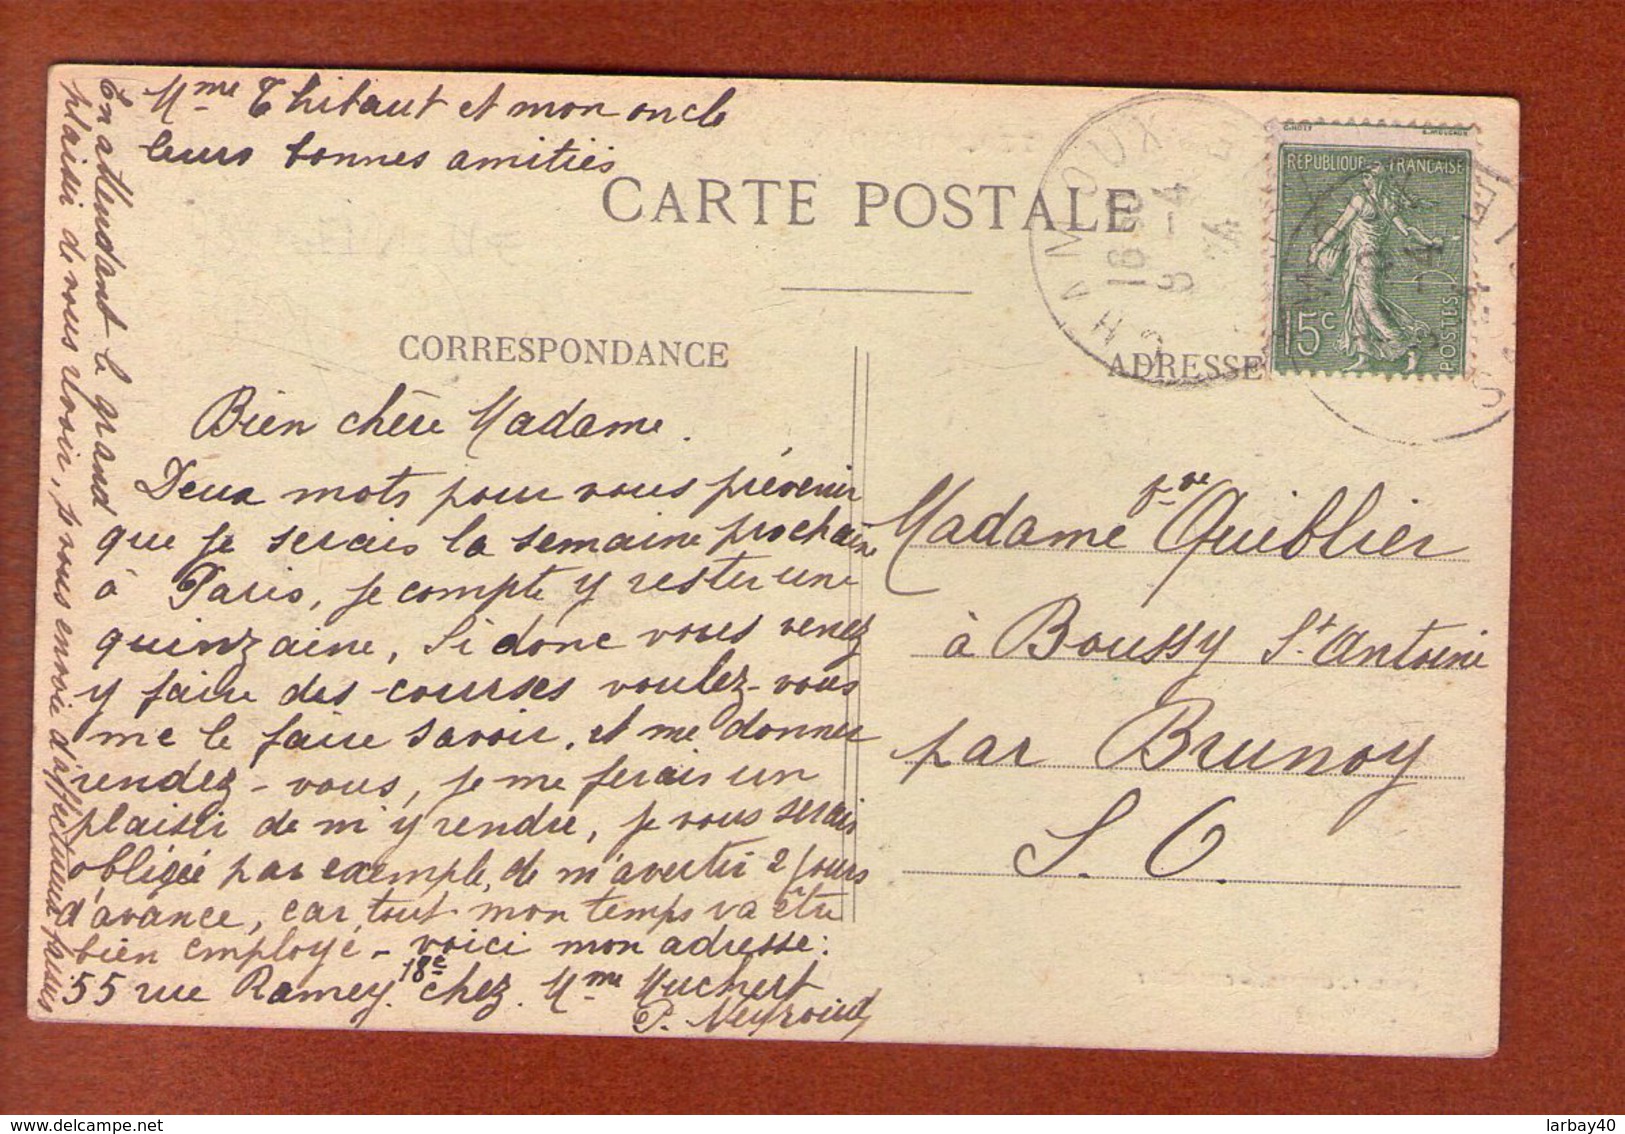 Mme Thibaut et mon oncle
leurs bonnes amitiés
CARTE POSTALE
CORRESPONDANCE
Bien chère Madame.
Deux mots pour vous prévenir
que je serais la semaine prochaine
à Paris, je compte y rester une
quinzaine, Si donc vous venez
y faire des courses voulez-vous
me le faire savoir, et me donner
rendez-vous, je me ferais un
plaisir de m'y rendre, je vous serais
obligée par exemple, de m'avertir 2 jours
d'avance, car tout mon temps va être
bien employé - voici mon adresse:
55 rue Ramey 18e chez Mme Muchert
P.
En attendant le grand
plaisir de vous voir, vous envoie d'affectueux
ADRESSE
CHAMOUX
16 30
8 -4
24
RÉPUBLIQUE FRANÇAISE
15c
POSTES
Madame Vve Quiblier
à Boussy St Antoine
par Brunoy
S. O.
delcampe.net
larbay40